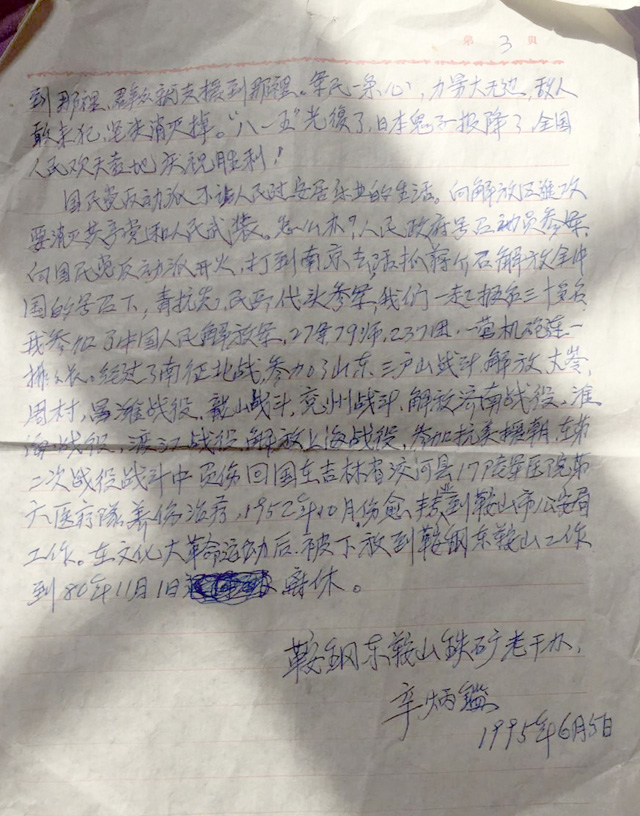 第 3 页
到那里,群众就支援到那里。军民一条心,力量大无边,敌人
敢来犯,坚决消灭掉。"八一五"光復了,日本鬼子投降了,全国
人民欢天喜地庆祝胜利!
国民党反动派不让人民过安居乐业的生活。向解放区进攻
要消灭共产党和人民武装。怎么办?人民政府号召动员参军,
向国民党反动派开火,打到南京去活抓蒋介石解放全中
国的号召下,青抗先,民兵,代头参军,我们一起报名三十多名
我参加了中国人民解放军,27军79师,237团,一营机炮连一
排。经过了南征北战,参加了山东、三户山战斗,解放
周村,昌潍战役,战斗,兖州战斗,解放济南战役,淮
海战役,渡江战役,解放上海战役,参加抗美援朝,在第
二次战役战斗中负伤回国在吉林省县17陆军医院第
六医疗队养伤治疗,1952年10月伤愈,转到鞍山市公安局
工作。在文化大革命运动后,被下放到鞍钢东鞍山工作
到80年11月1日离休。
鞍钢东鞍山铁矿老干办,
辛炳鑑
1995年6月5日